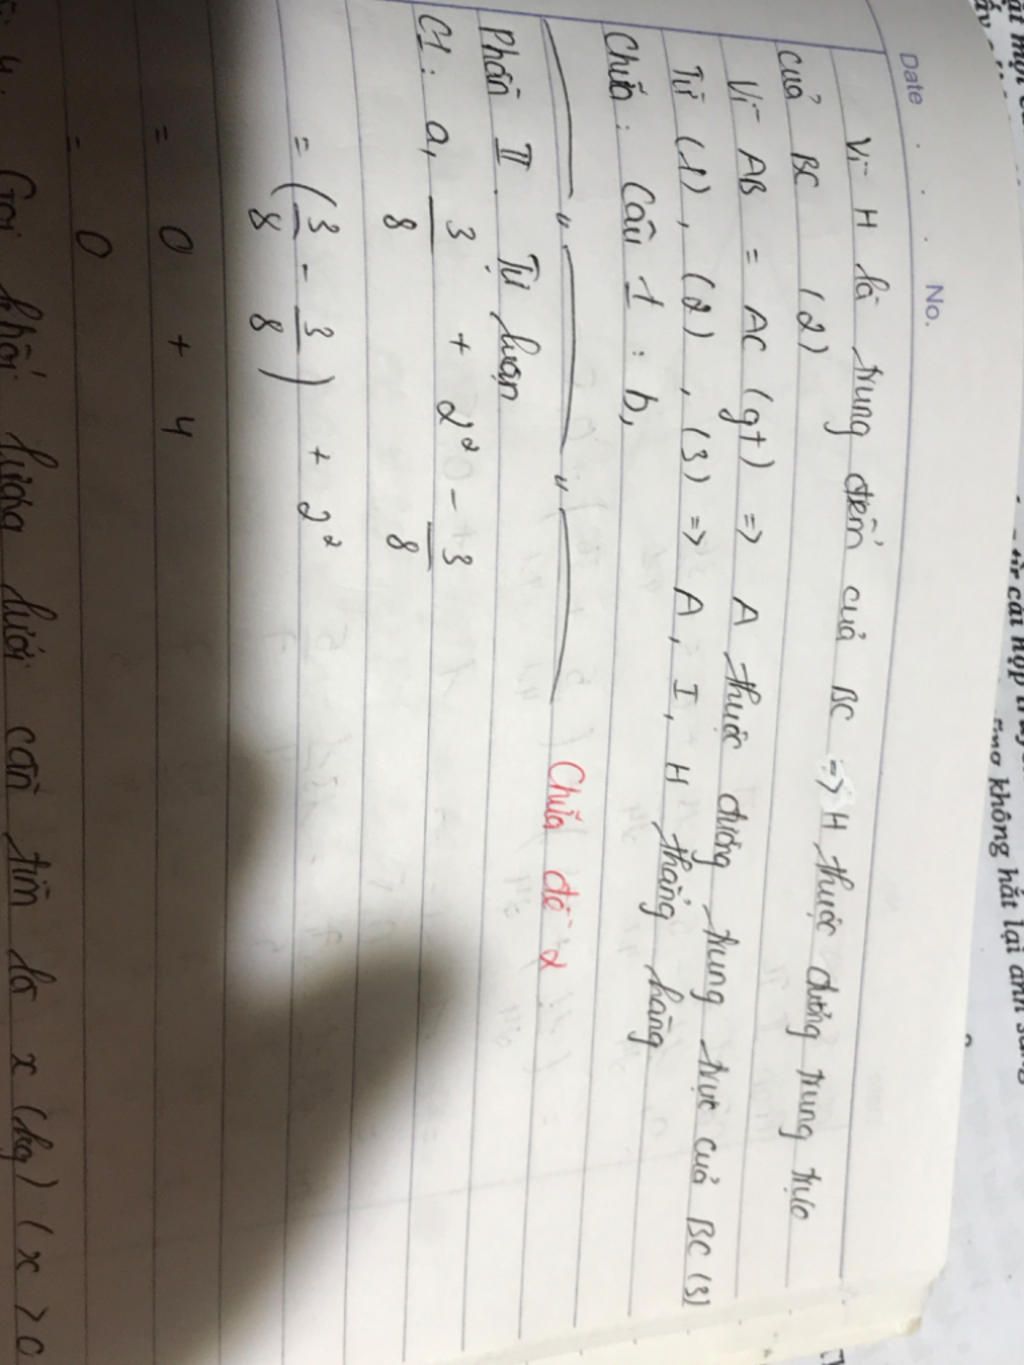 Date No.
Vì H là trung điểm của BC => H thuộc đường trung trực
của BC (2)
Vì AB = AC (gt) => A thuộc đường trung trực của BC (3)
Từ (1), (2), (3) => A, I, H thẳng hàng
Chữa: Câu 1: b,
Chữa đề 2
Phần II. Tự luận
C1: a, 3/8 + 2² - 3/8
= (3/8 - 3/8) + 2²
= 0 + 4
= 0
Gọi khối lượng lưới cần tìm là x (kg) (x > 0
từ cái hộp
không hắt lại ánh sáng